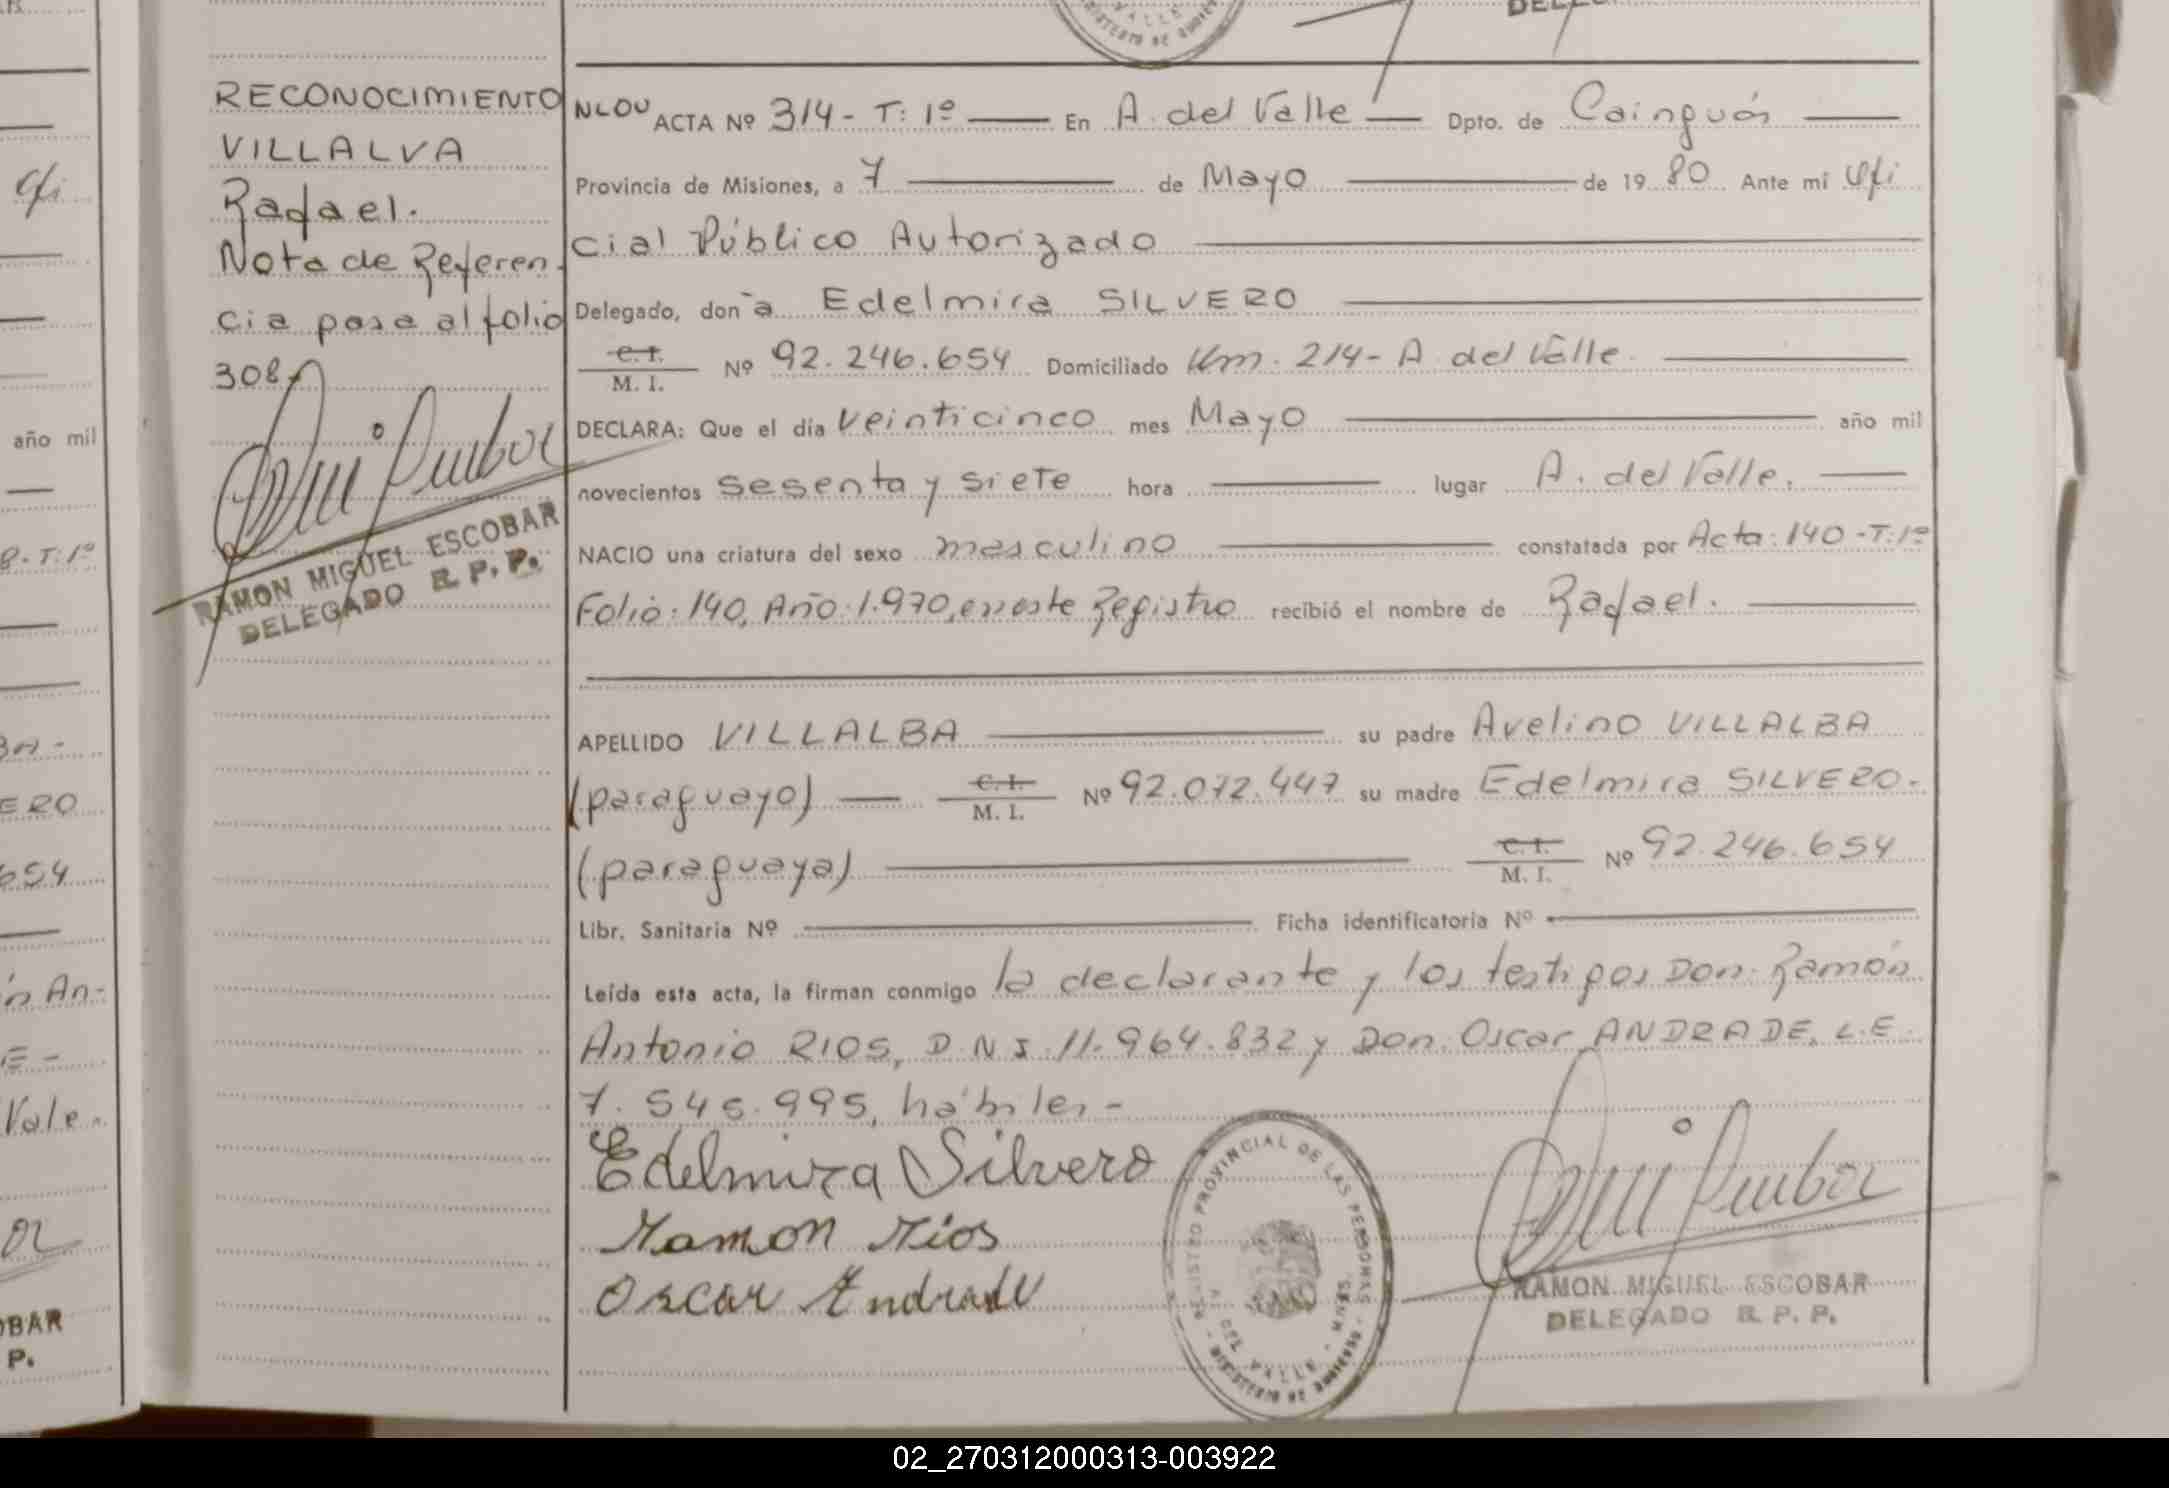 RECONOCIMIENTO
VILLALVA
Rafael.
Nota de Referen-
cia pasa al folio
308.
RAMON MIGUEL ESCOBAR
DELEGADO R. P. P.
ACTA Nº 314 - T: 1º En A. del Valle Dpto. de Cainguás
Provincia de Misiones, a 7 de Mayo de 19 80 Ante mi Ofi
cial Público Autorizado
Delegado, don a Edelmira SILVERO
C. I. M. I. Nº 92.246.654 Domiciliado Km. 214 - A. del Valle.
DECLARA: Que el día veinticinco mes Mayo año mil
novecientos sesenta y siete hora lugar A. del Valle.
NACIO una criatura del sexo masculino constatada por Acta: 140 - T: 1º
Folio: 140, Año: 1.970, en este Registro recibió el nombre de Rafael.
APELLIDO VILLALBA su padre Avelino VILLALBA
(paraguayo) C. I. M. I. Nº 92.072.447 su madre Edelmira SILVERO.-
(paraguaya) C. I. M. I. Nº 92.246.654
Libr. Sanitaria Nº Ficha identificatoria Nº
Leída esta acta, la firman conmigo la declarante y los testigos Don: Ramón
Antonio RIOS, D.N.I. 11.964.832 y Don: Oscar ANDRADE, L.E.
7.545.995, hábiles.-
Edelmira Silvero
Ramon Rios
Oscar Andrade
REGISTRO PROVINCIAL DE LAS PERSONAS
A. DEL VALLE - MNES.
RAMON MIGUEL ESCOBAR
DELEGADO R. P. P.
02_270312000313-003922